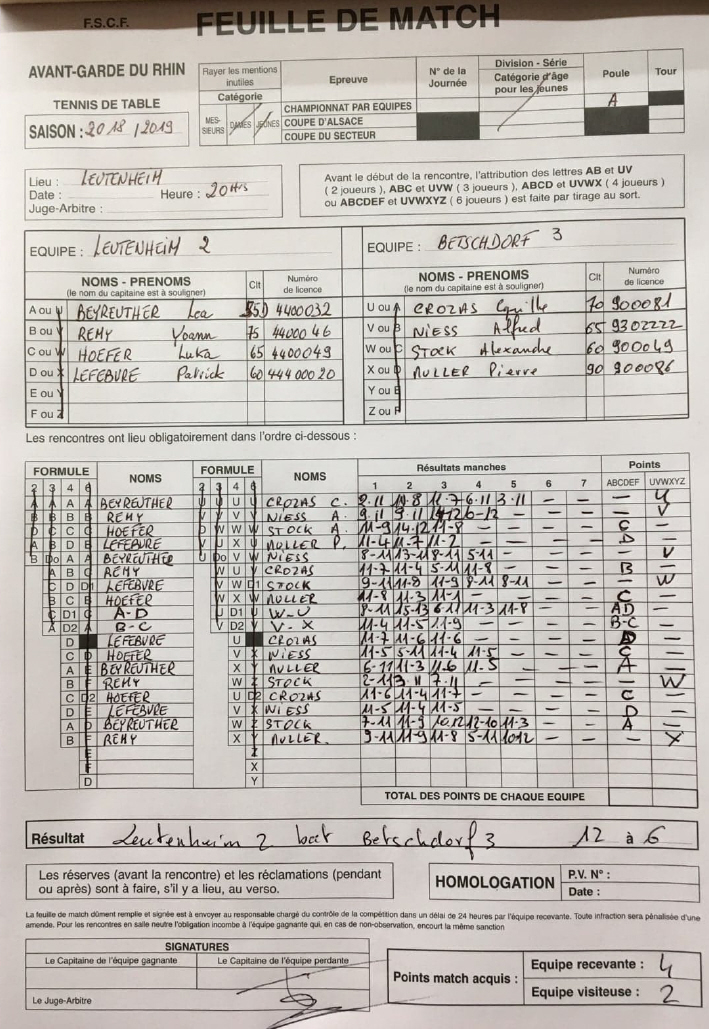 F.S.C.F. FEUILLE DE MATCH
AVANT-GARDE DU RHIN
TENNIS DE TABLE
SAISON : 2018 / 2019
Rayer les mentions inutiles
Catégorie
MES-SIEURS DAMES JEUNES
Epreuve
CHAMPIONNAT PAR EQUIPES
COUPE D'ALSACE
COUPE DU SECTEUR
N° de la Journée
Division - Série
Catégorie d'âge pour les jeunes
Poule
A
Tour
Lieu : LEUTENHEIM
Date : Heure : 20Hrs
Juge-Arbitre :
Avant le début de la rencontre, l'attribution des lettres AB et UV
( 2 joueurs ), ABC et UVW ( 3 joueurs ), ABCD et UVWX ( 4 joueurs )
ou ABCDEF et UVWXYZ ( 6 joueurs ) est faite par tirage au sort.
EQUIPE : LEUTENHEIM 2
EQUIPE : BETSCHDORF 3
NOMS - PRENOMS (le nom du capitaine est à souligner) Clt Numéro de licence
NOMS - PRENOMS (le nom du capitaine est à souligner) Clt Numéro de licence
A ou U BEYREUTHER Lea 4400032
U ou A CROZAS 70 900081
B ou V REMY Yoann 75 4400046
V ou B NIESS Alfred 65 9302222
C ou W HOEFER Luka 65 4400049
W ou C STOCK Alexandre 60 900049
D ou X LEFEBURE Patrick 60 44400020
X ou D MULLER Pierre 90 900086
E ou Y
Y ou E
F ou Z
Z ou F
Les rencontres ont lieu obligatoirement dans l'ordre ci-dessous :
FORMULE NOMS FORMULE NOMS Résultats manches Points
2 3 4 6 2 3 4 6 1 2 3 4 5 6 7 ABCDEF UVWXYZ
A BEYREUTHER U CROZAS C. 2-11 11-7 6-11 3-11 — — — U
B REMY V NIESS A. 9-11 9-11 — — — — V
C HOEFER W STOCK A. 11-9 14-12 11-8 — — — — C —
D LEFEBURE X MULLER P. 11-4 11-7 11-2 — — — — D —
A BEYREUTHER V NIESS 8-11 13-11 8-11 5-11 — — — — V
B REMY U CROZAS 11-7 11-4 5-11 11-8 — — — B —
D LEFEBURE W STOCK 9-11 11-8 11-9 8-11 8-11 — — — W
C HOEFER X MULLER 11-8 11-3 11-1 — — — — C —
D1 A-D D1 W-U 8-11 15-13 6-11 11-3 11-8 — — AD —
D2 B-C D2 V-X 11-4 11-5 11-9 — — — — B-C —
D LEFEBURE U CROZAS 11-7 11-6 11-6 — — — — D —
C HOEFER V NIESS 11-5 5-11 11-4 11-5 — — — C —
A BEYREUTHER X MULLER 6-11 11-3 11-6 11-5 — — — A —
B REMY W STOCK 2-11 3-11 7-11 — — — — — W
C HOEFER U CROZAS 11-6 11-4 11-7 — — — — C —
D LEFEBURE V NIESS 11-5 11-4 11-5 — — — — D —
A BEYREUTHER W STOCK 7-11 11-9 10.12 12-10 11-3 — — A —
B REMY X MULLER. 9-11 11-9 11-8 5-11 1012 — — — X
D Y
TOTAL DES POINTS DE CHAQUE EQUIPE
Résultat Leutenheim 2 bat Betschdorf 3 12 à 6
Les réserves (avant la rencontre) et les réclamations (pendant
ou après) sont à faire, s'il y a lieu, au verso.
HOMOLOGATION
P.V. N° :
Date :
La feuille de match dûment remplie et signée est à envoyer au responsable chargé du contrôle de la compétition dans un délai de 24 heures par l'équipe recevante. Toute infraction sera pénalisée d'une
amende. Pour les rencontres en salle neutre l'obligation incombe à l'équipe gagnante qui, en cas de non-observation, encourt la même sanction
SIGNATURES
Le Capitaine de l'équipe gagnante Le Capitaine de l'équipe perdante
Le Juge-Arbitre
Points match acquis :
Equipe recevante : 4
Equipe visiteuse : 2